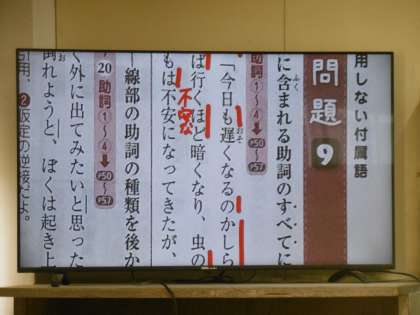 用しない付属語
問題 9
に含まれる助詞のすべてに
助詞 1〜4 ➡ P50〜P57
「今日も遅くなるのかしら
おそ
は行くほど暗くなり、虫の
不安
もは不安になってきたが、
線部の助詞の種類を後か
20 助詞 1〜4 ➡ P50〜P57
く外に出てみたいと思った
倒れようと、ぼくは起き上
引用。 ❷仮定の逆接だよ。